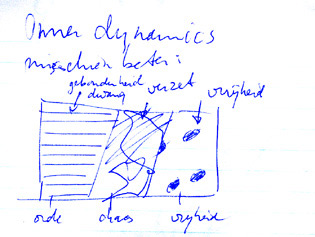 Inner dynamics
misschien beter:
gebondenheid verzet vrijheid
dwang
orde chaos vrijheid